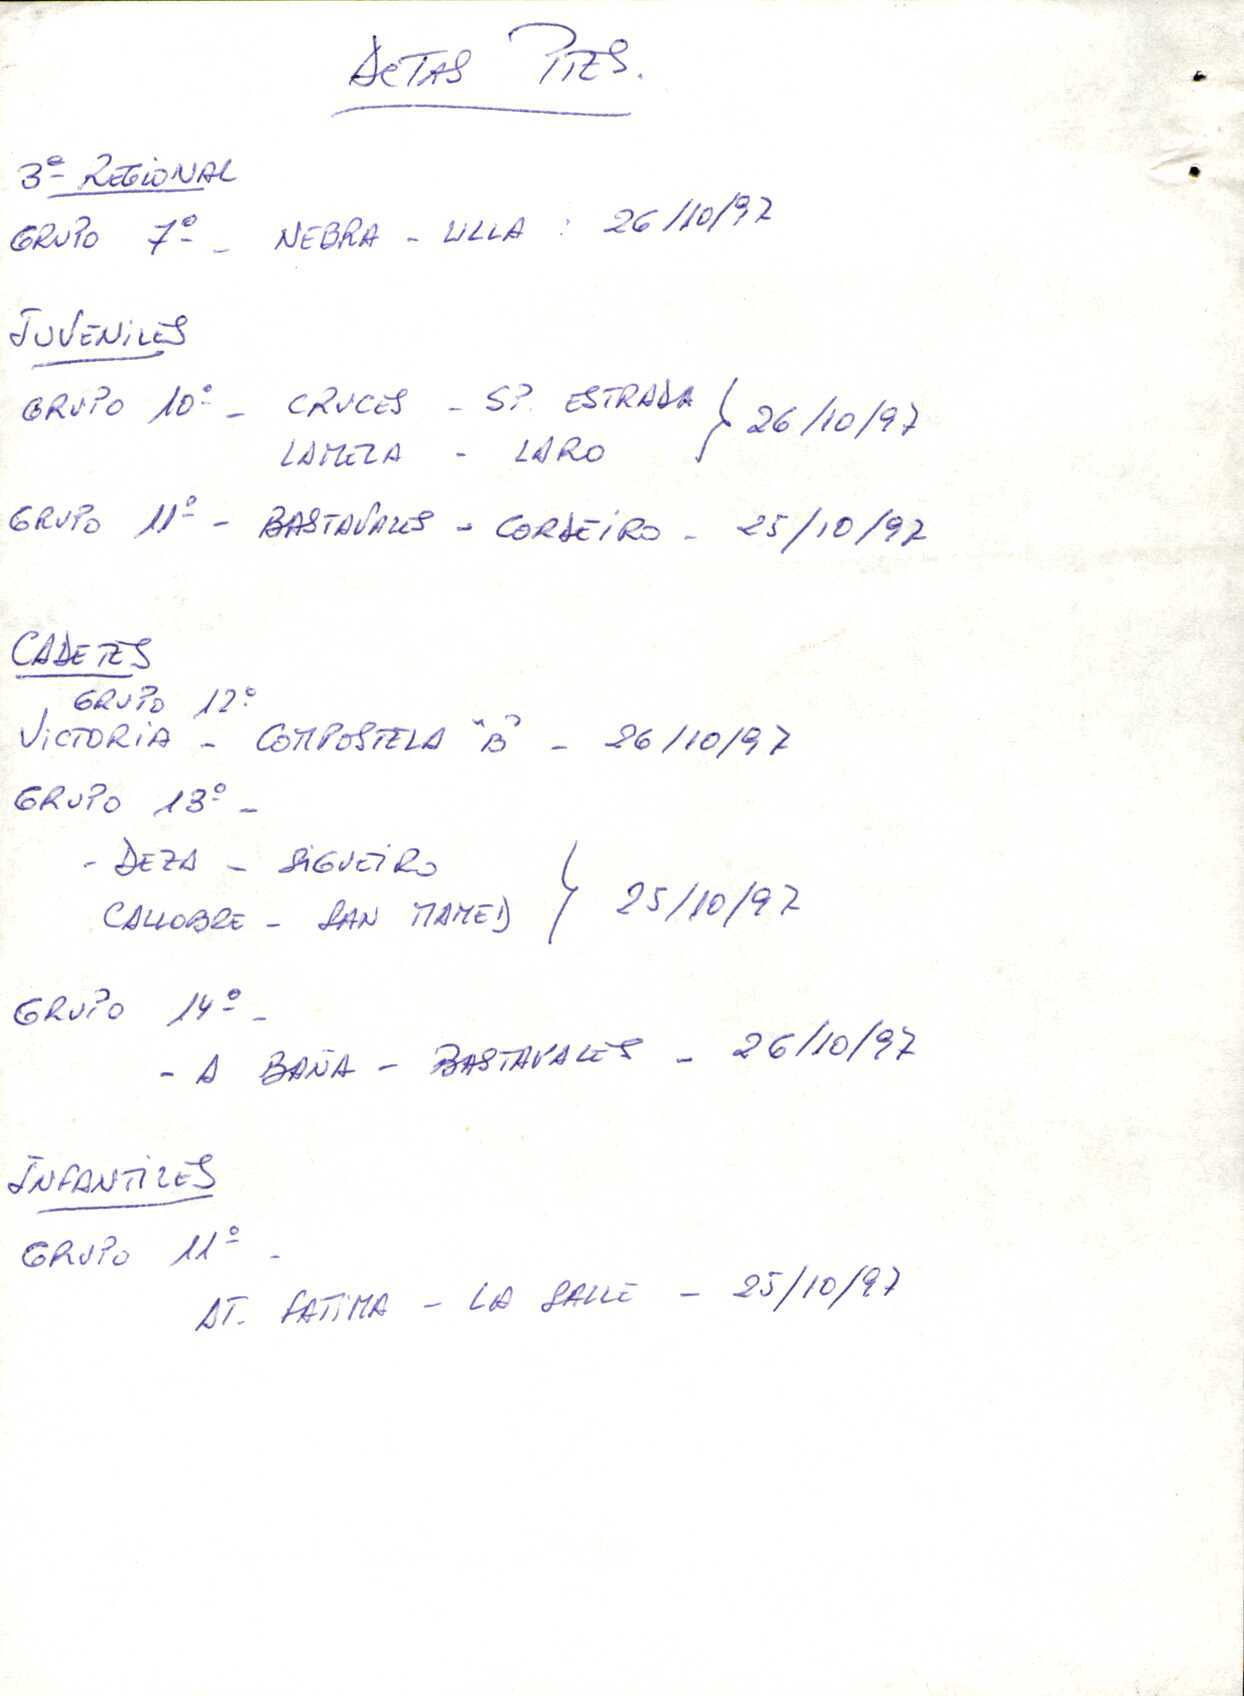 ACTAS PTES.
3ª REGIONAL
GRUPO 7º - NEBRA - ULLA : 26/10/97
JUVENILES
GRUPO 10º - CRUCES - SP. ESTRADA } 26/10/97
LAMELA - LARO
GRUPO 11º - BASTAVALES - CORDEIRO - 25/10/97
CADETES
GRUPO 12º
VICTORIA - COMPOSTELA "B" - 26/10/97
GRUPO 13º -
- DEZA - SIGUEIRO
CALLOBRE - SAN MAMED } 25/10/97
GRUPO 14º -
- A BAÑA - BASTAVALES - 26/10/97
INFANTILES
GRUPO 11º -
AT. FATIMA - LA SALLE - 25/10/97